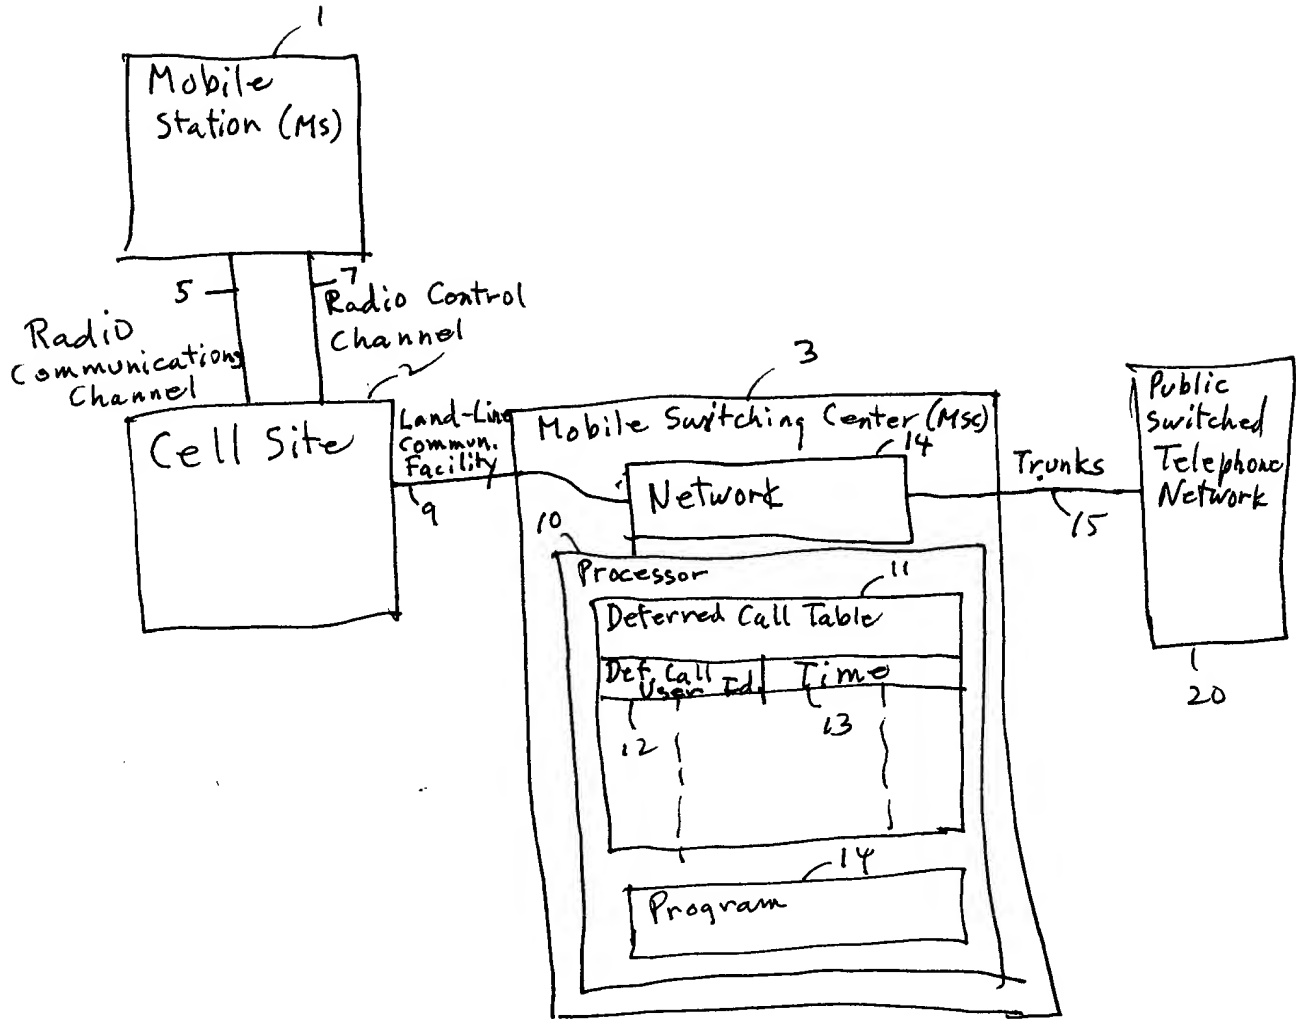 1
Mobile
Station (MS)
5
7
Radio
Communications
Channel
Radio Control
Channel
2
Cell Site
Land-Line
Commun.
Facility
9
3
Mobile Switching Center (MSC)
14
Network
Trunks
15
Public
Switched
Telephone
Network
20
10
Processor
11
Deferred Call Table
Def. Call
User Id.
Time
12
13
14
Program